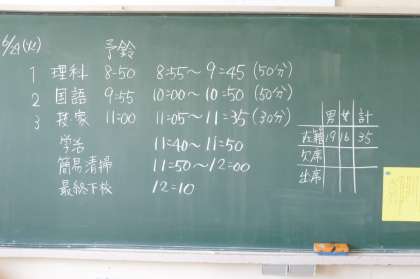 6/29(火)
予鈴
1 理科 8:50 8:55～9:45 (50分)
2 国語 9:55 10:00～10:50 (50分)
3 技家 11:00 11:05～11:35 (30分)
学活 11:40～11:50
簡易清掃 11:50～12:00
最終下校 12:10
男 女 計
在籍 19 16 35
欠席
出席